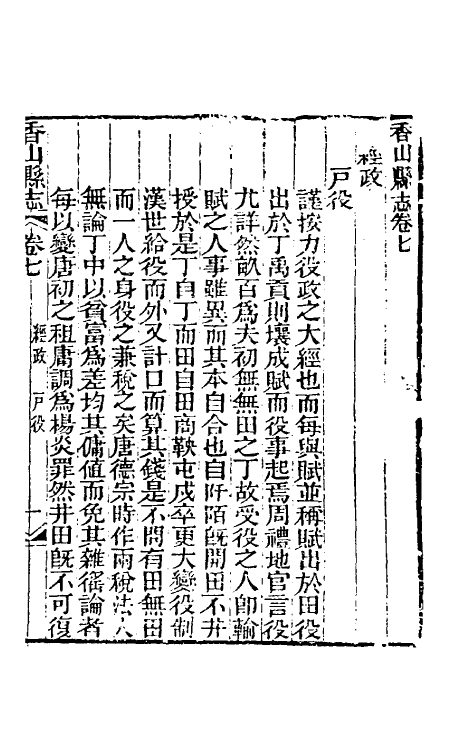 香山縣志卷七
經政
戶役
謹按力役政之大經也而每與賦並稱賦出於田役
出於丁禹貢則壤成賦而役事起焉周禮地官言役
尤詳然畝百爲夫初無無田之丁故受役之人卽輸
賦之人事雖異而其本自合也自阡陌旣開田不井
授於是丁自丁而田自田商鞅屯戍卒更大變役制
漢世給役而外又計口而算其錢是不問有田無田
而一人之身役之兼稅之矣唐德宗時作兩稅法人
無論丁中以貧富爲差均其傭值而免其雜徭論者
每以變唐初之租庸調爲楊炎罪然井田旣不可復
香山縣志 卷七 經政 戶役 一